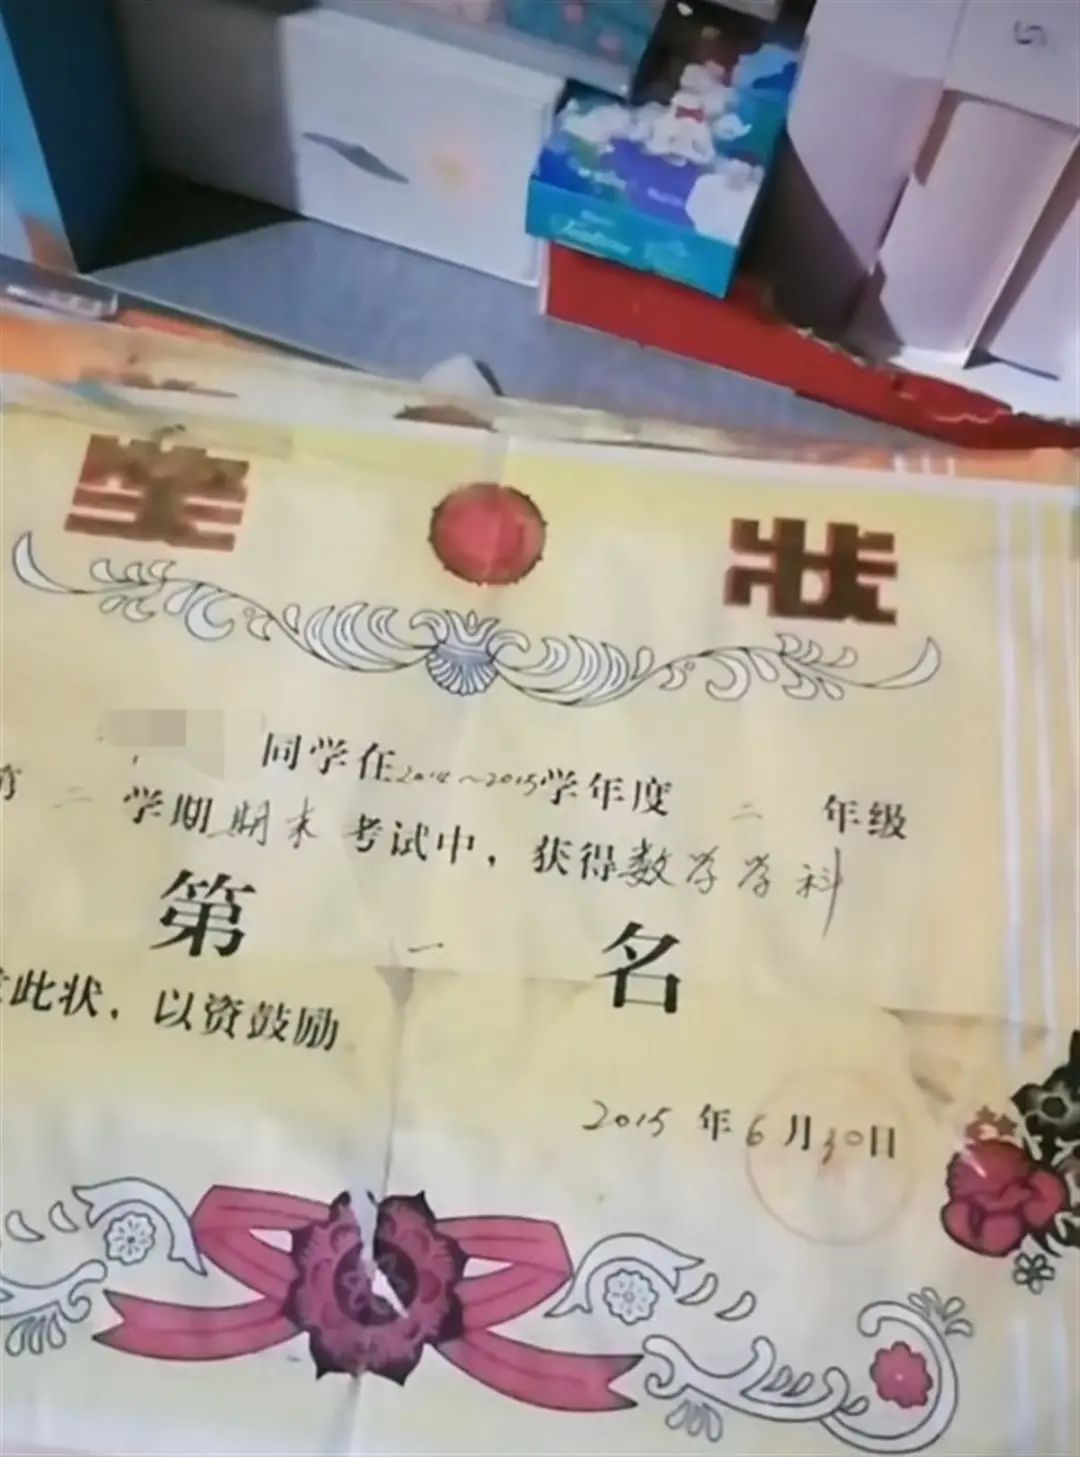 奖 状
同学在2014~2015学年度 二 年级
第 二 学期期末考试中，获得数学学科
第 一 名
此状，以资鼓励
2015年6月30日